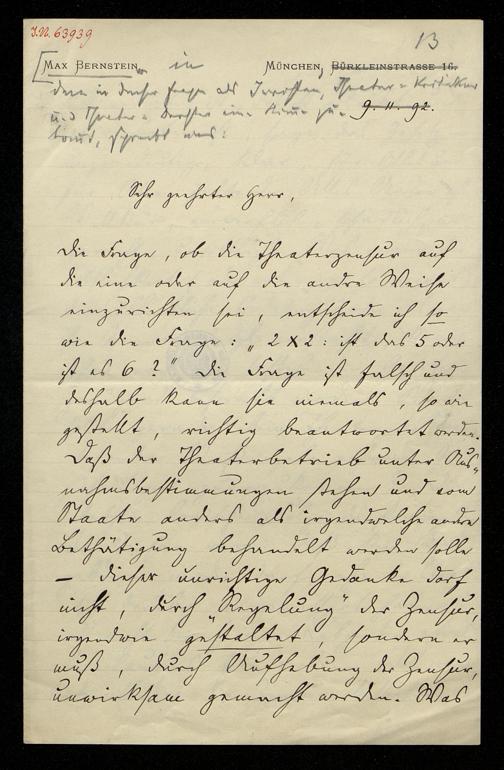 J.N. 63939
13
Max Bernstein in München, Bürkleinstrasse 16.
dem in dieser Frage als Juristen, Theater-Kritiker
und Theater- eine zu-
kommt, schreibt uns:
9. 11. 92.
Sehr geehrter Herr,
die Frage, ob die Theaterzensur auf
die eine oder auf die andre Weise
einzurichten sei, entscheide ich so
wie die Frage: „2 x 2: ist das 5 oder
ist es 6?" Die Frage ist falsch und
deshalb kann sie niemals, so wie
gestellt, richtig beantwortet werden.
Daß der Theaterbetrieb unter Aus-
nahmsbestimmungen stehen und vom
Staate anders als irgendwelche andre
Bethätigung behandelt werden solle
– dieser unrichtige Gedanke darf
nicht, durch "Regelung" der Zensur,
irgendwie gestaltet, sondern er
muß, durch Aufhebung der Zensur,
unwirksam gemacht werden. Was